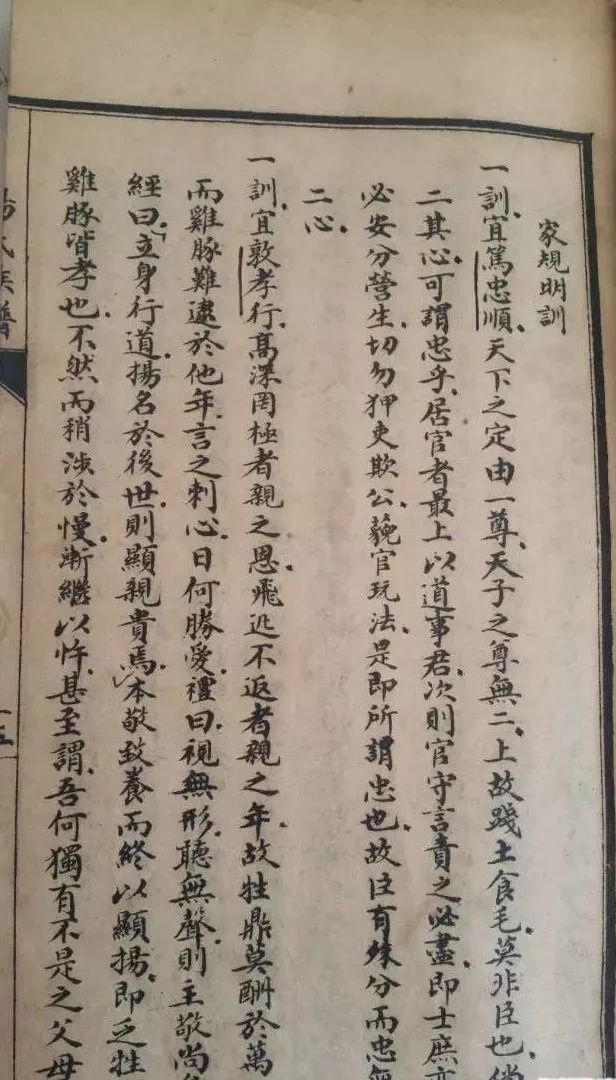 家規明訓
一訓宜篤忠順天下之定由一尊天子之尊無二上故踐土食毛莫非臣也倘
二其心可謂忠乎居官者最上以道事君次則官守言責之必盡即士庶亦
必安分營生切勿狎吏欺公藐官玩法是即所謂忠也故臣有殊分而忠無
二心
一訓宜敦孝行高深罔極者親之恩飛迅不返者親之年故牲鼎莫酬於萬
而雞豚難逮於他年言之刺心日何勝愛禮曰視無形聽無聲則主敬尚
經曰立身行道揚名於後世則顯親貴焉本敬致養而終以顯揚即乏牲
雞豚皆孝也不然而稍涉於慢漸繼以忤甚至謂吾何獨有不是之父母
氏族譜
十五